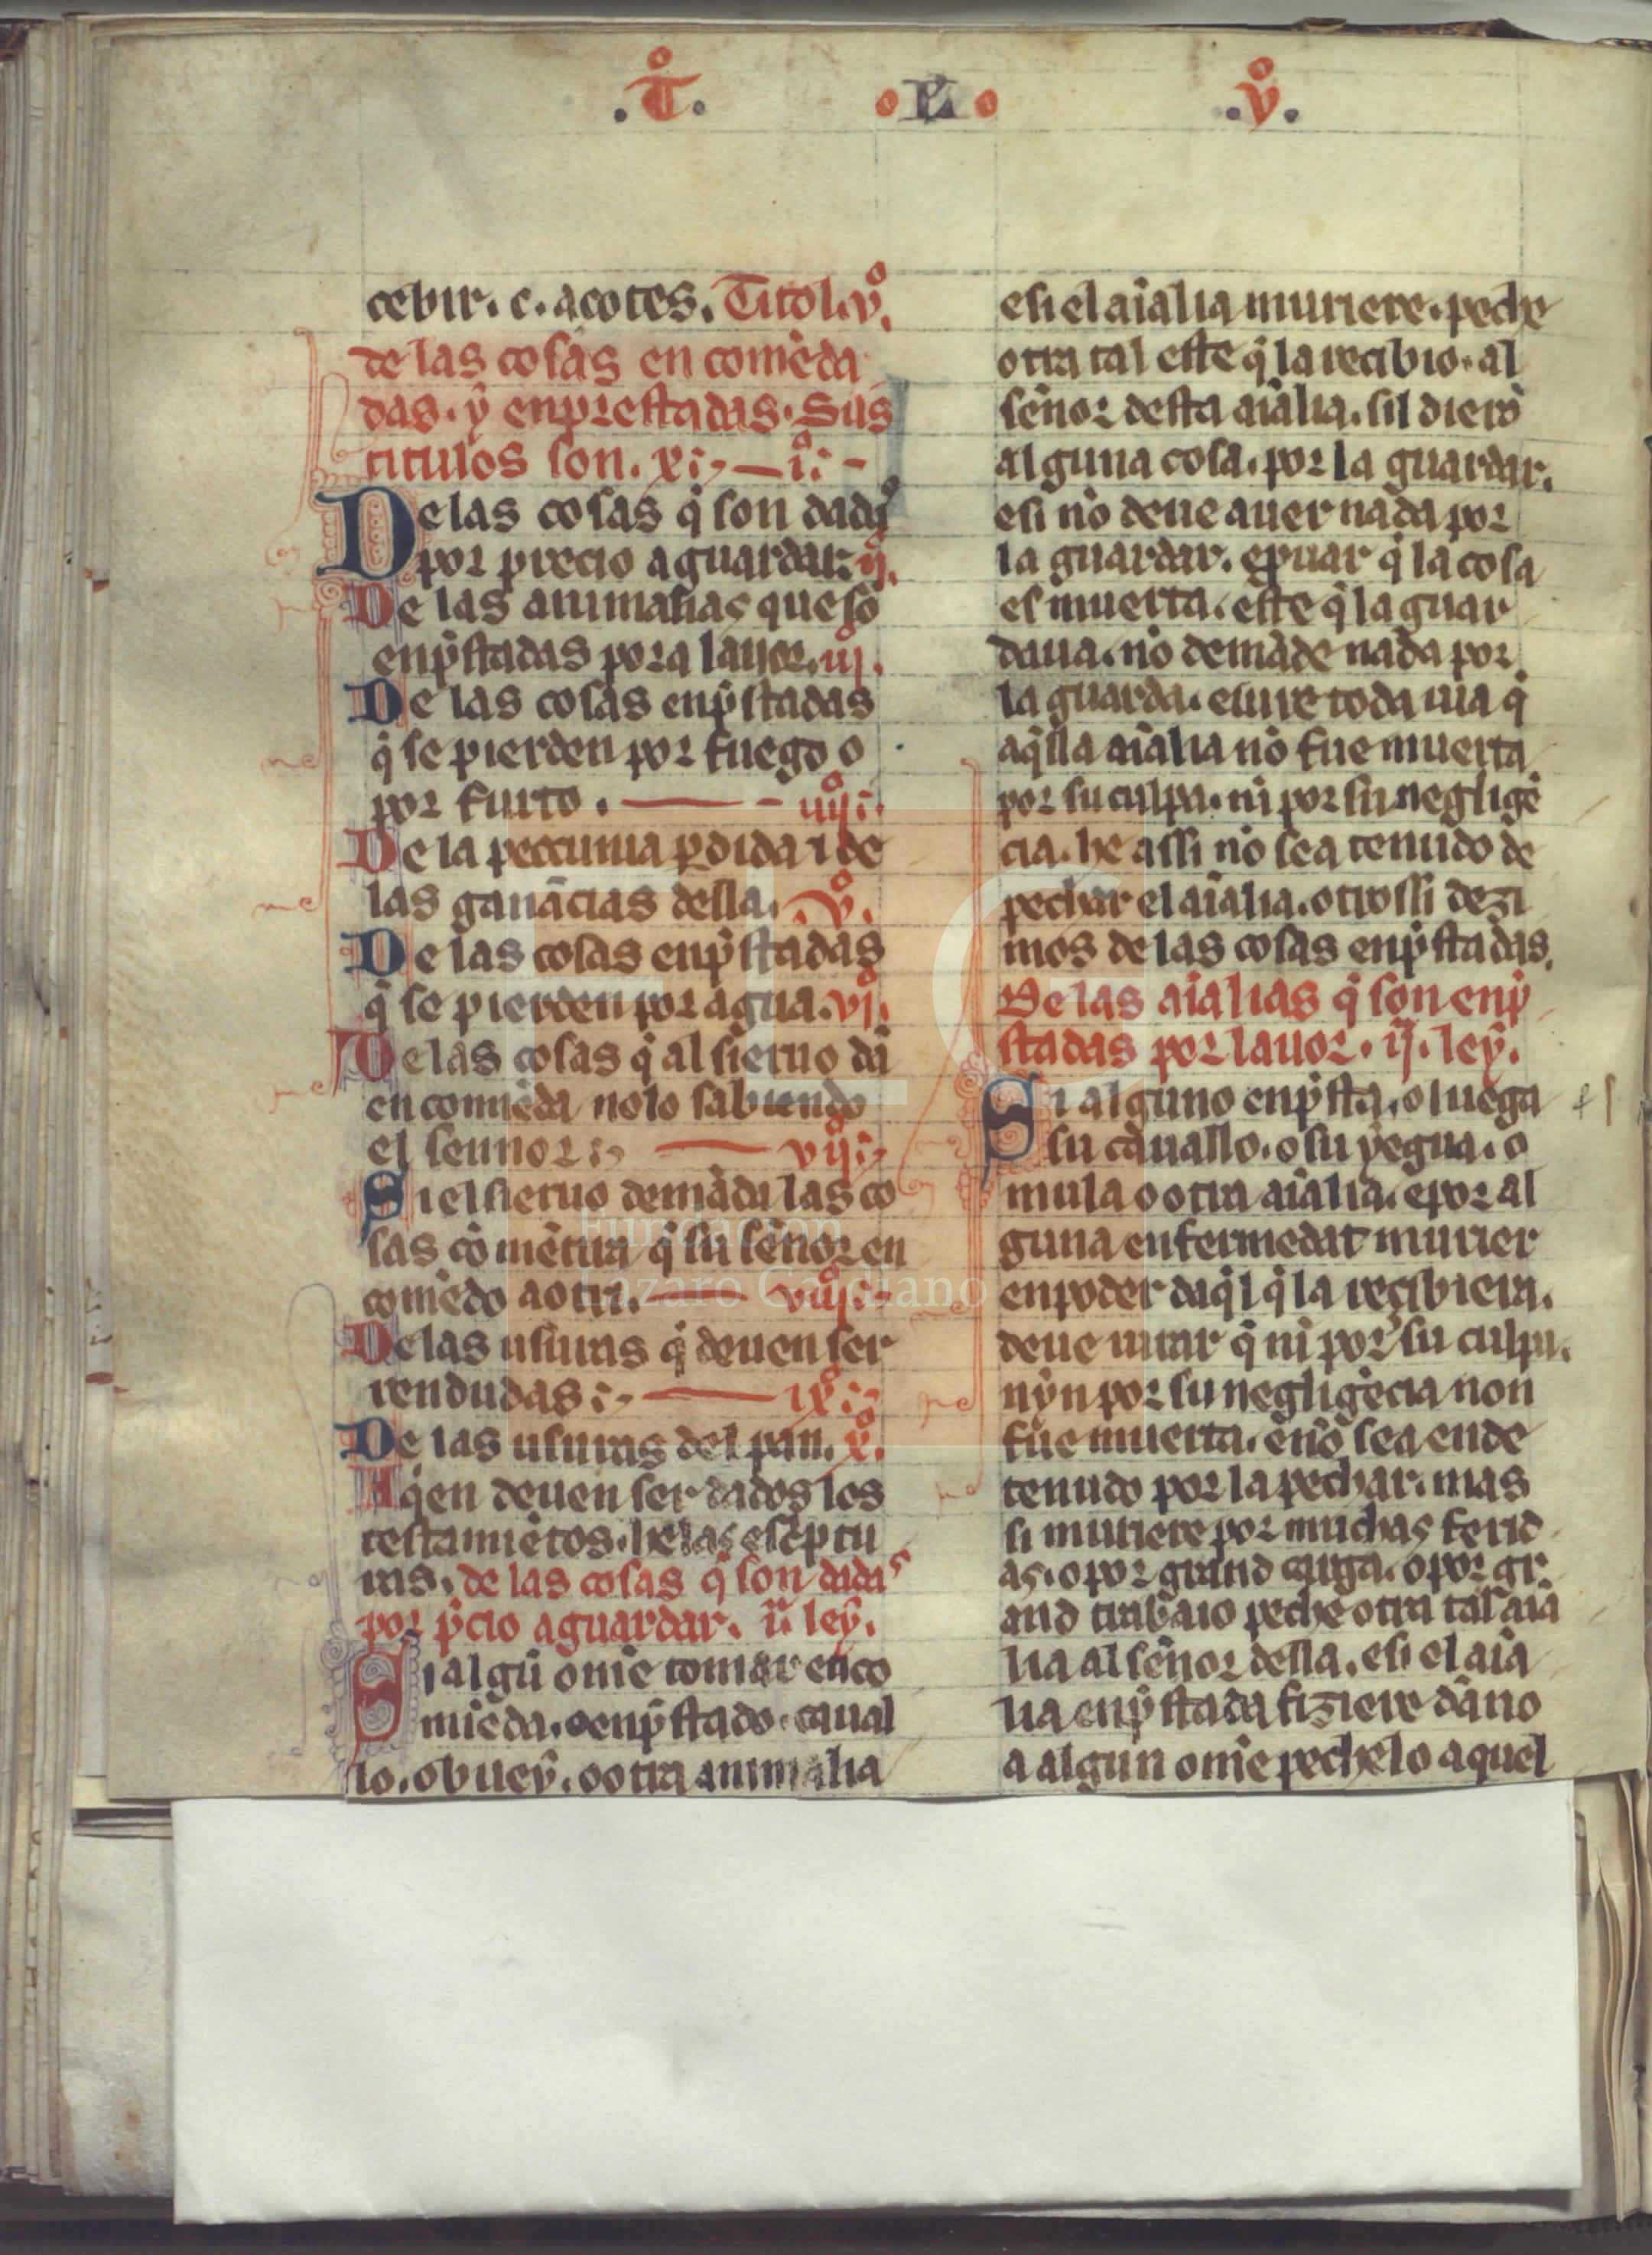 .Tº. .L. .vº.
cebir. c. acotes. Titol. vº.
de las cosas en comēda
das. ẏ enprestadas. Sus
titulos son. xi. — iº.
De las cosas q̄ son dadas
por precio a guardar. ijº.
De las animalias que sō
enp̄stadas pora lauor. iijº.
De las cosas enp̄stadas
q̄ se pierden por fuego o
por furto. — iiijº.
De la peccunia ꝑdida ⁊ de
las ganācias della. vº.
De las cosas enp̄stadas
q̄ se pierden por agua. vjº.
De las cosas q̄ al sieruo dā
en comiēda no lo sabiendo
el sennor. — vijº.
Si el sieruo demāda las co
sas cō mētira q̄ su sēnor en
comēdo a otri. — viijº.
De las usuras q̄ deuen ser
rendudas. — ixº.
De las usuras del pan. xº.
A q̄en deuen ser dados los
testamiētos. he las esc̄ptu
ras. de las cosas q̄ son dadas
por p̄cio a guardar. iª leẏ.
Si algū ome tomar en co
miēda. o enp̄stado. caual
lo. o bueẏ. o otra animalia
e si el aīalia muriere. peche
otra tal este q̄ la recibio. al
sēnor desta aīalia. sil dierō
alguna cosa. por la guardar.
e si nō deue auer nada por
la guardar. e prouar q̄ la cosa
es muerta. este q̄ la guar
daua. nō demāde nada por
la guarda. e iure toda uia q̄
aq̄lla aīalia nō fue muerta
por su culpa. nī por su negligē
cia. he assi nō sea tenudo de
pechar el aīalia. otrossi dezi
mos de las cosas enp̄stadas.
De las aīalias q̄ son enp̄
stadas por lauor. ijª. leẏ.
Si alguno enp̄sta. o luega
su cauallo. o su ẏegua. o
mula o otra aīalia. e por al
guna enfermedat murier
en poder daq̄l q̄ la recibiera.
deue iurar q̄ nī por su culpa.
nẏn por su negligēcia non
fue muerta. e nō sea ende
tenudo por la pechar. mas
si muriere por muchas ferid
as. o por grand carga. o por gr
and trabaio peche otra tal aīa
lia al sēnor della. e si el aīa
lia enp̄stada fiziere dāno
a algun ome pechelo aquel
Fundación
Lázaro Galdiano